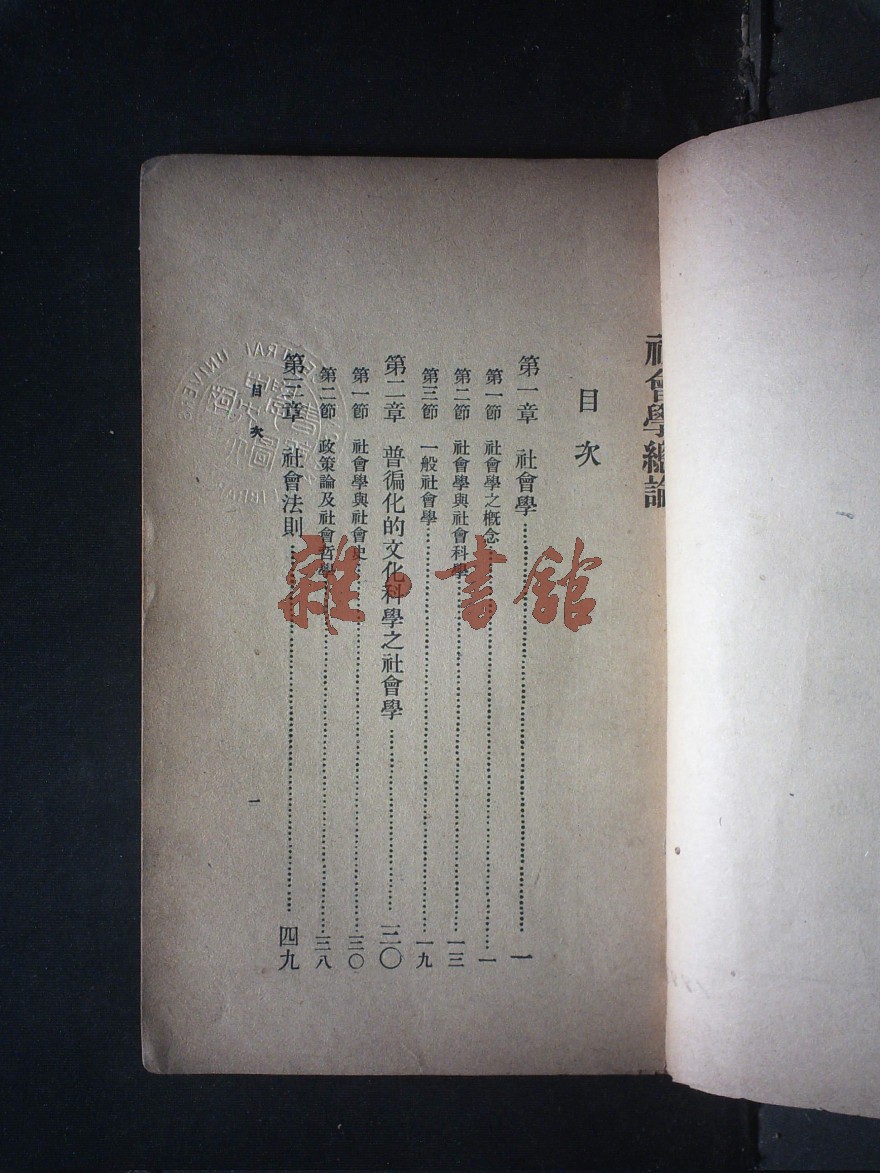 社會學總論
目次
第一章　社會學……一
第一節　社會學之概念……一
第二節　社會學與社會科學……一三
第三節　一般社會學……一九
第二章　普徧化的文化科學之社會學……三〇
第一節　社會學與社會史……三〇
第二節　政策論及社會哲學……三八
第三章　社會法則……四九
目次
一
雜·書館